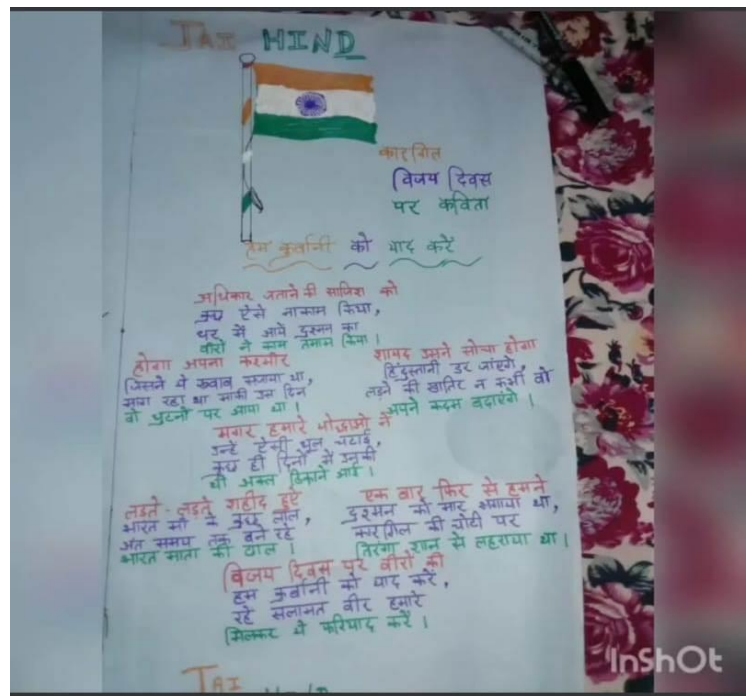 JAI HIND
कारगिल
विजय दिवस
पर कविता
हम कुर्बानी को याद करें
अधिकार जताने की साजिश को
कुछ ऐसे नाकाम किया,
घर में आये दुश्मन का
वीरों ने काम तमाम किया।
होगा अपना कश्मीर
जिसने ये ख्वाब सजाया था,
मांग रहा था माफी उस दिन
वो घुटनों पर आया था।
शायद उसने सोचा होगा
हिंदुस्तानी डर जाएंगे,
लड़ने की खातिर न कभी वो
अपने कदम बढाएंगे।
मगर हमारे योद्धाओ ने
उन्हें ऐसी धूल चटाई,
कुछ ही दिनों में उनकी
थी अक्ल ठिकाने आई।
लड़ते-लड़ते शहीद हुऐ
भारत माँ के कुछ लाल,
अंत समय तक बने रहे
भारत माता की ढाल।
एक बार फिर से हमने
दुश्मन को मार भगाया था,
कारगिल की चोटी पर
तिरंगा शान से लहराया था।
विजय दिवस पर वीरों की
हम कुर्बानी को याद करें,
रहे सलामत वीर हमारे
मिलकर ये फरियाद करें।
JAI
InShOt